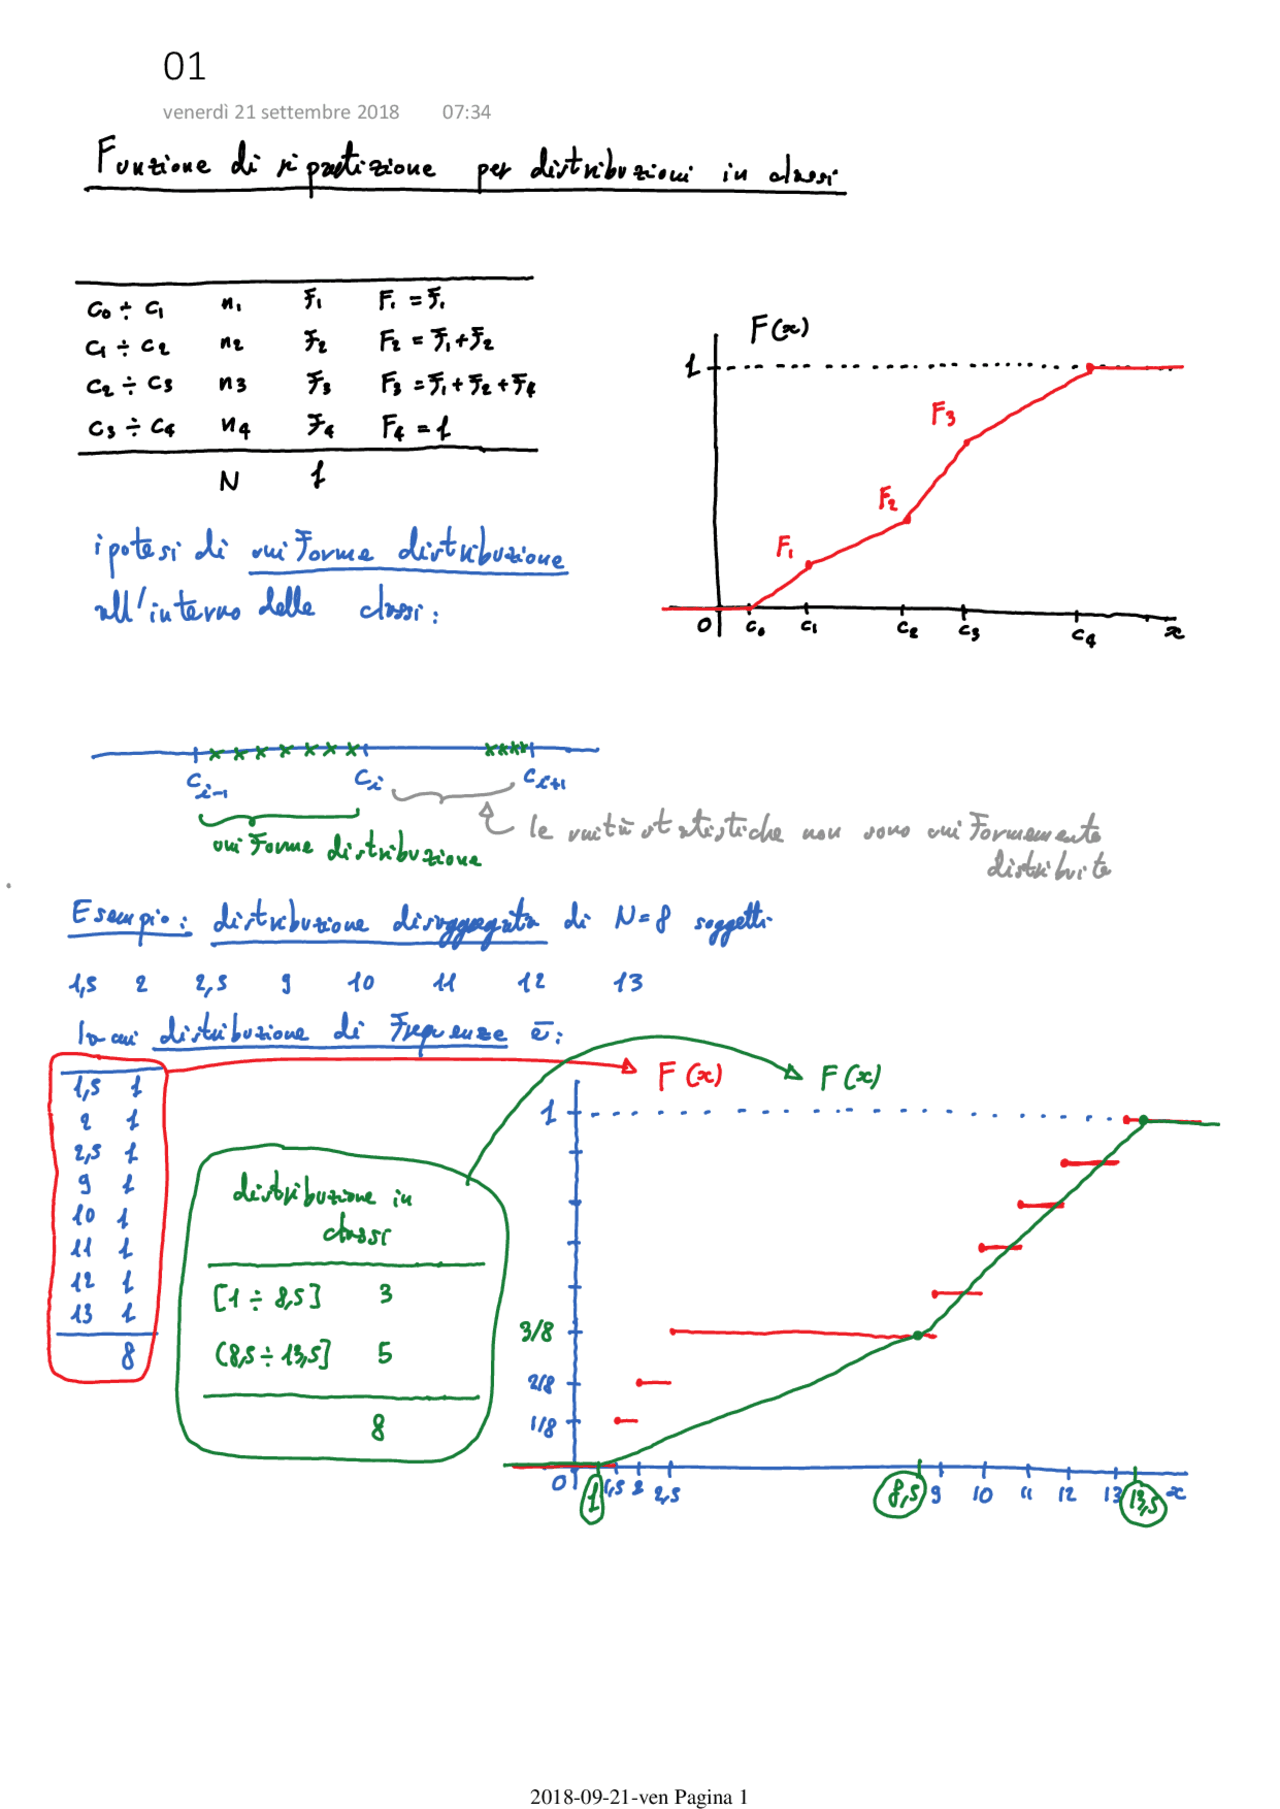 01
venerdì 21 settembre 2018 07:34
Funzione di ripartizione per distribuzioni in classi
c₀ ÷ c₁ n₁ f₁ F₁ = f₁
c₁ ÷ c₂ n₂ f₂ F₂ = f₁ + f₂
c₂ ÷ c₃ n₃ f₃ F₃ = f₁ + f₂ + f₄
c₃ ÷ c₄ n₄ f₄ F₄ = 1
N 1
F(x)
1
F₃
F₂
F₁
0 c₀ c₁ c₂ c₃ c₄ x
ipotesi di uniforme distribuzione
all'interno delle classi:
cᵢ₋₁ cᵢ cᵢ₊₁
uniforme distribuzione
le unità statistiche non sono uniformemente
distribuite
Esempio: distribuzione disaggregata di N=8 soggetti
1,5 2 2,5 9 10 11 12 13
la cui distribuzione di frequenze è:
1,5 1
2 1
2,5 1
9 1
10 1
11 1
12 1
13 1
8
distribuzione in
classi
[1 ÷ 8,5] 3
(8,5 ÷ 13,5] 5
8
F(x) F(x)
1
3/8
2/8
1/8
0 1 1,5 2 2,5 8,5 9 10 11 12 13 13,5 x
2018-09-21-ven Pagina 1